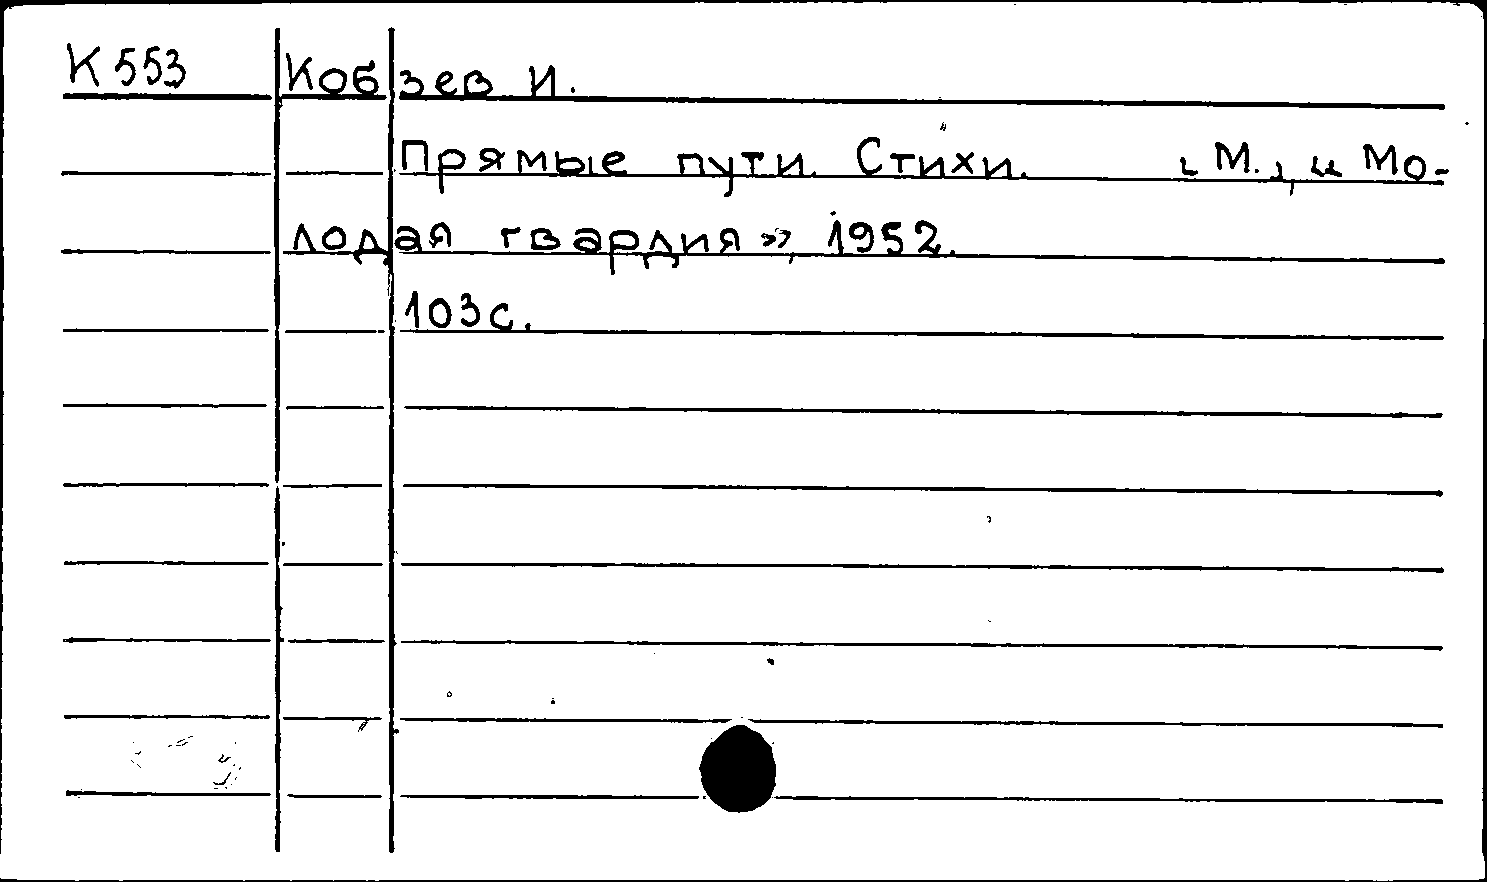 К 553 Кобзев И.
Прямые пути. Стихи. [М.], «Мо-
лодая гвардия», 1952.
103 с.